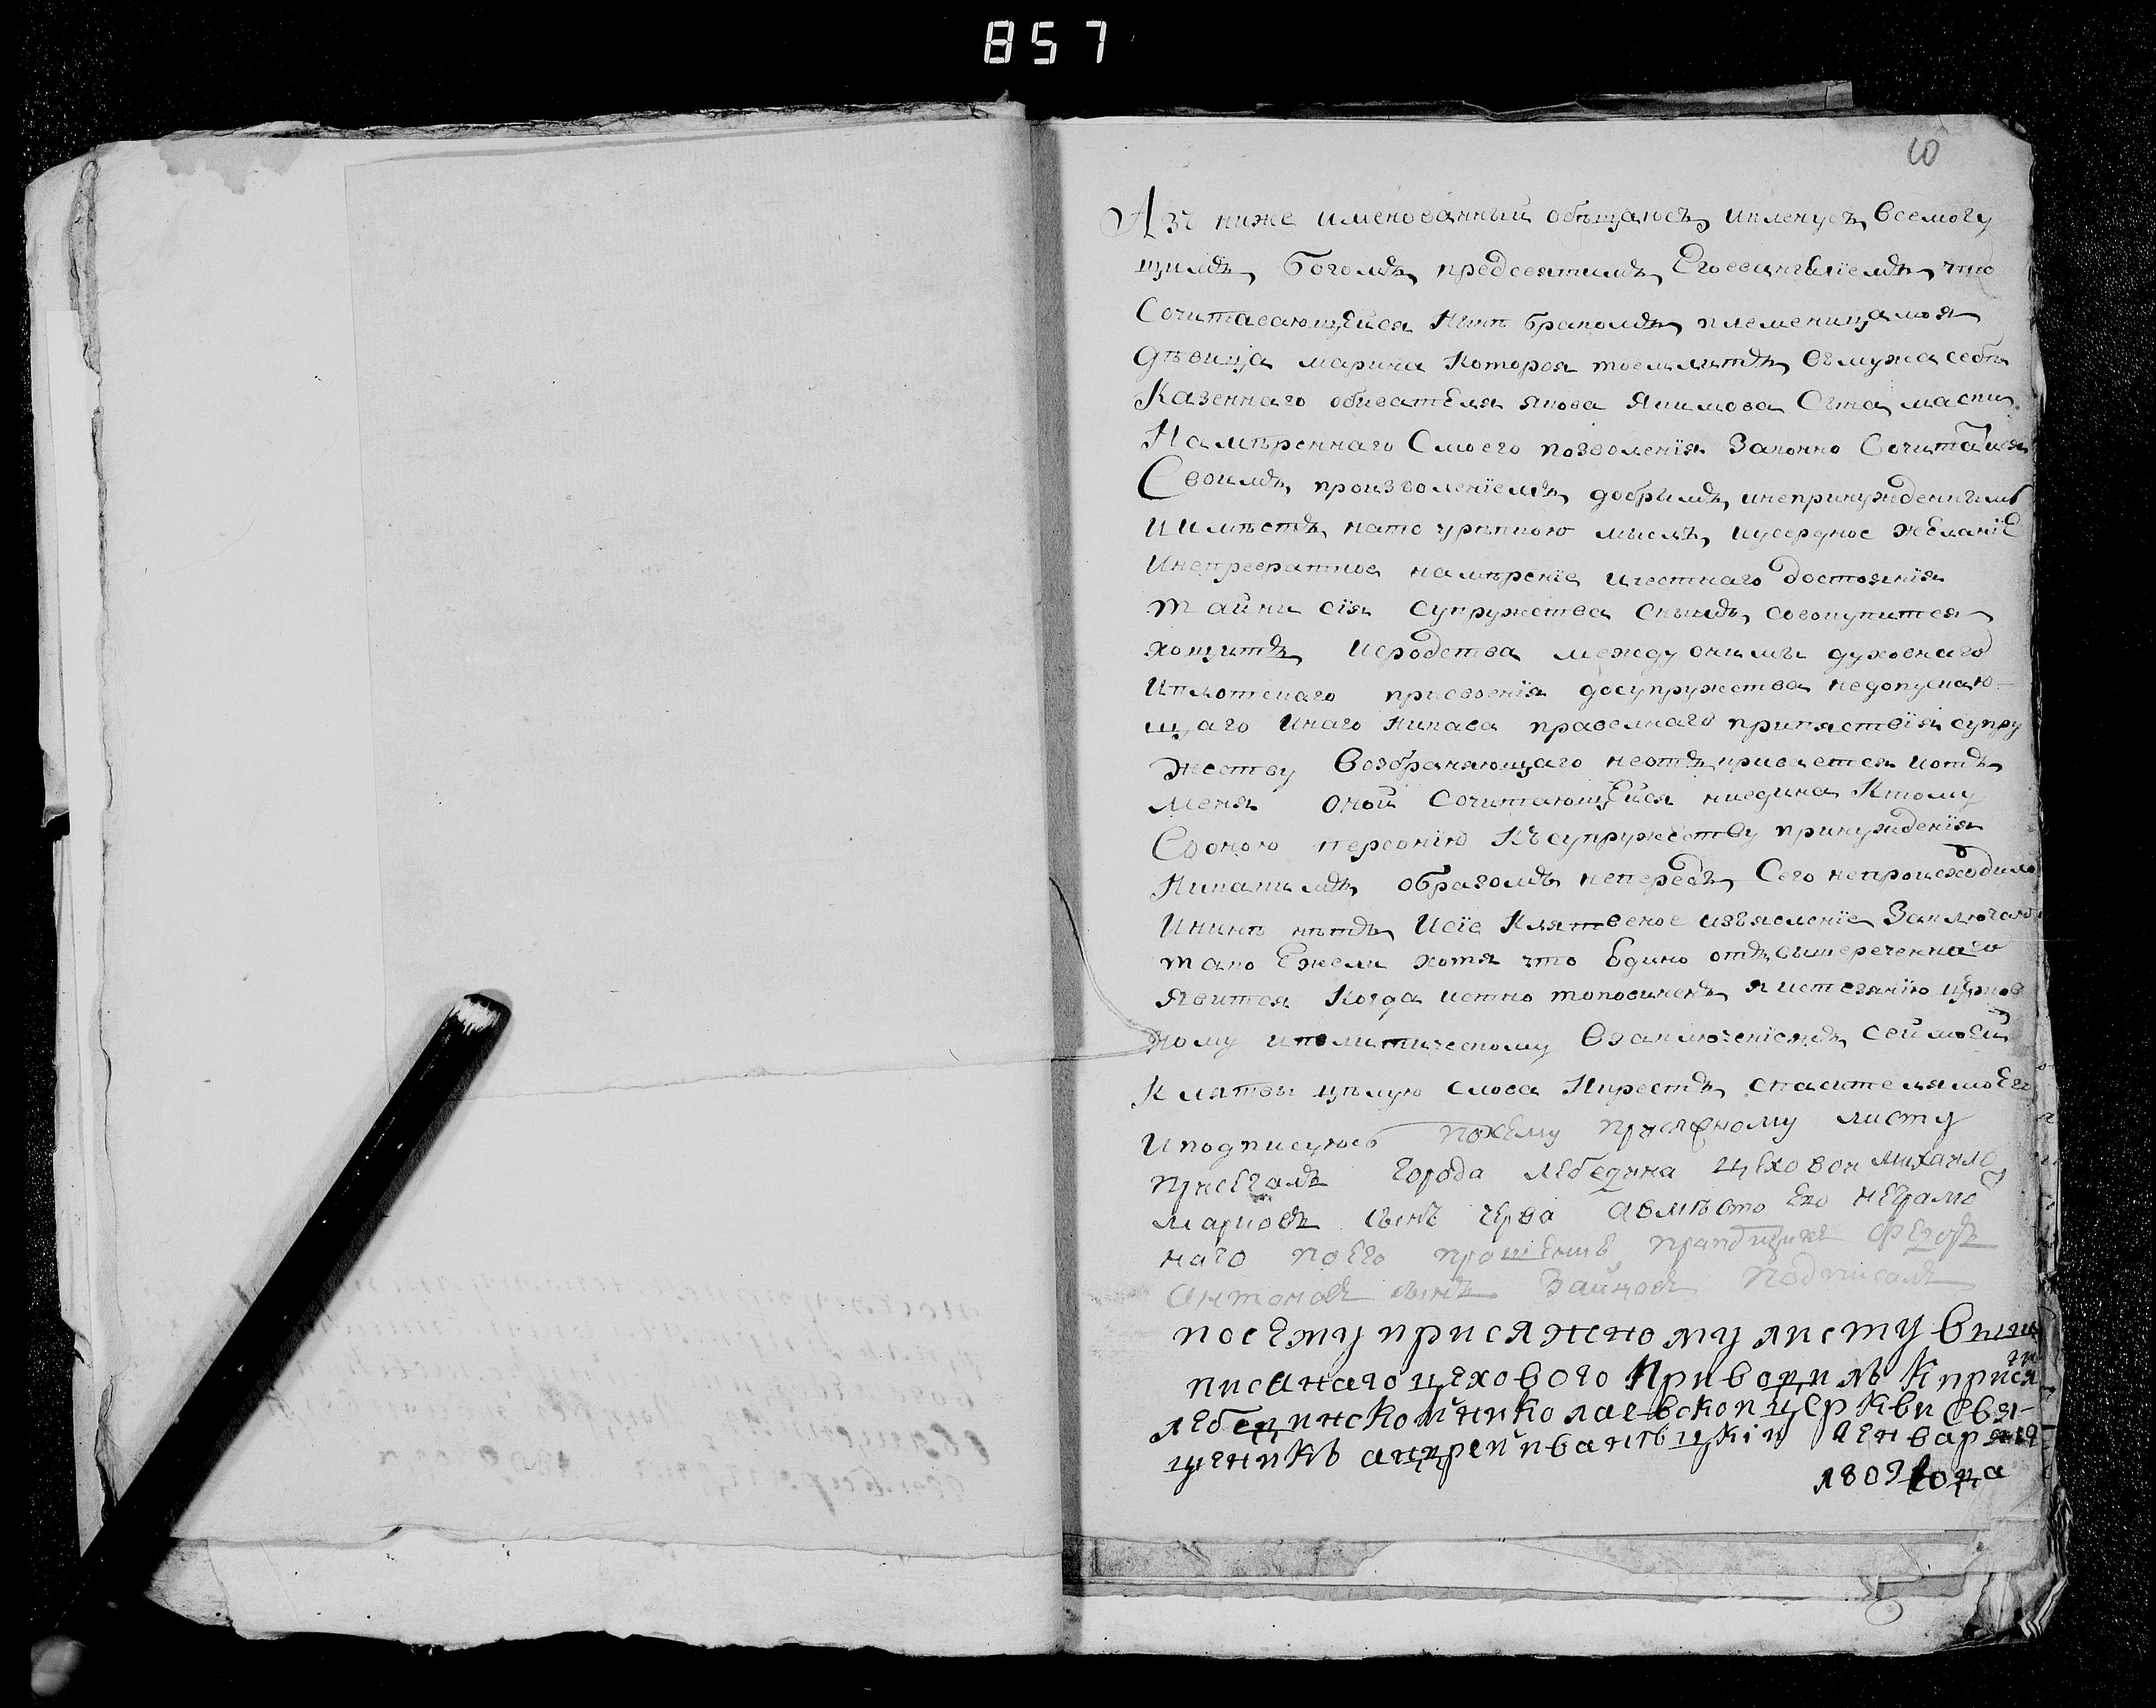 857
10
Азъ ниже именованный обѣщаюсъ, икленусъ, всемогу
щимъ, Богомъ, предсвятимъ, Егоевангѣліемъ, что
Сочитавающейся Нинѣ бракомъ, племеницамоя
дѣвица марина Которая поемлитъ, въмужа себѣ
Казеннаго обивателя якова Якимова Сына
Намѣреннаго Смоего позволенія Законно Сочитатися
Своимъ, произволеніемъ, добримъ, инепринужденнымъ
иимѣетъ, нато крѣпкою мысль, иусердное желаніе
Инепревратное намѣреніе ичестнаго достоянія
тайни сія супружества снымъ, совокупится
хощитъ, иеродства между оними духовнаго
Иплотскаго присвоенія досупружества недопускаю-
щаго Инаго Никава правелнаго припятствія супру
жеству Возбраняющаго неотъкривается иотъ
меня оной сочитающейся ниедина Ктому
Сооною персоною Късупружеству принужденія
Никакимъ, образомъ непередъ, Сего непроисходило
Ининѣ нѣтъ, Исіе Клятвеное изъясленіе Заключаю
тако Ежели хотя что Едино отъвишереченнаго
Явится Когда истно топовиненъ, я истезанію церков
ному иполитическому Взаключеніемъ, сей моей
Клятвы цѣлую слова Икрестъ, спасителямоего
Иподписуюсь посему присяжному листу
присегалъ города лебедина цеховои михаило
марковъ сынъ черва авмѣсто его неграмо
наго поего прошению федоръ
антоновъ сынъ Зайцовъ подписалъ
посему присяжному листу выше
писанаго цехового Приводилъ Кприся
ги
лебединской николаевской церкви Свя-
щеникъ андрей ивановъ Генваря 19
1809 Года